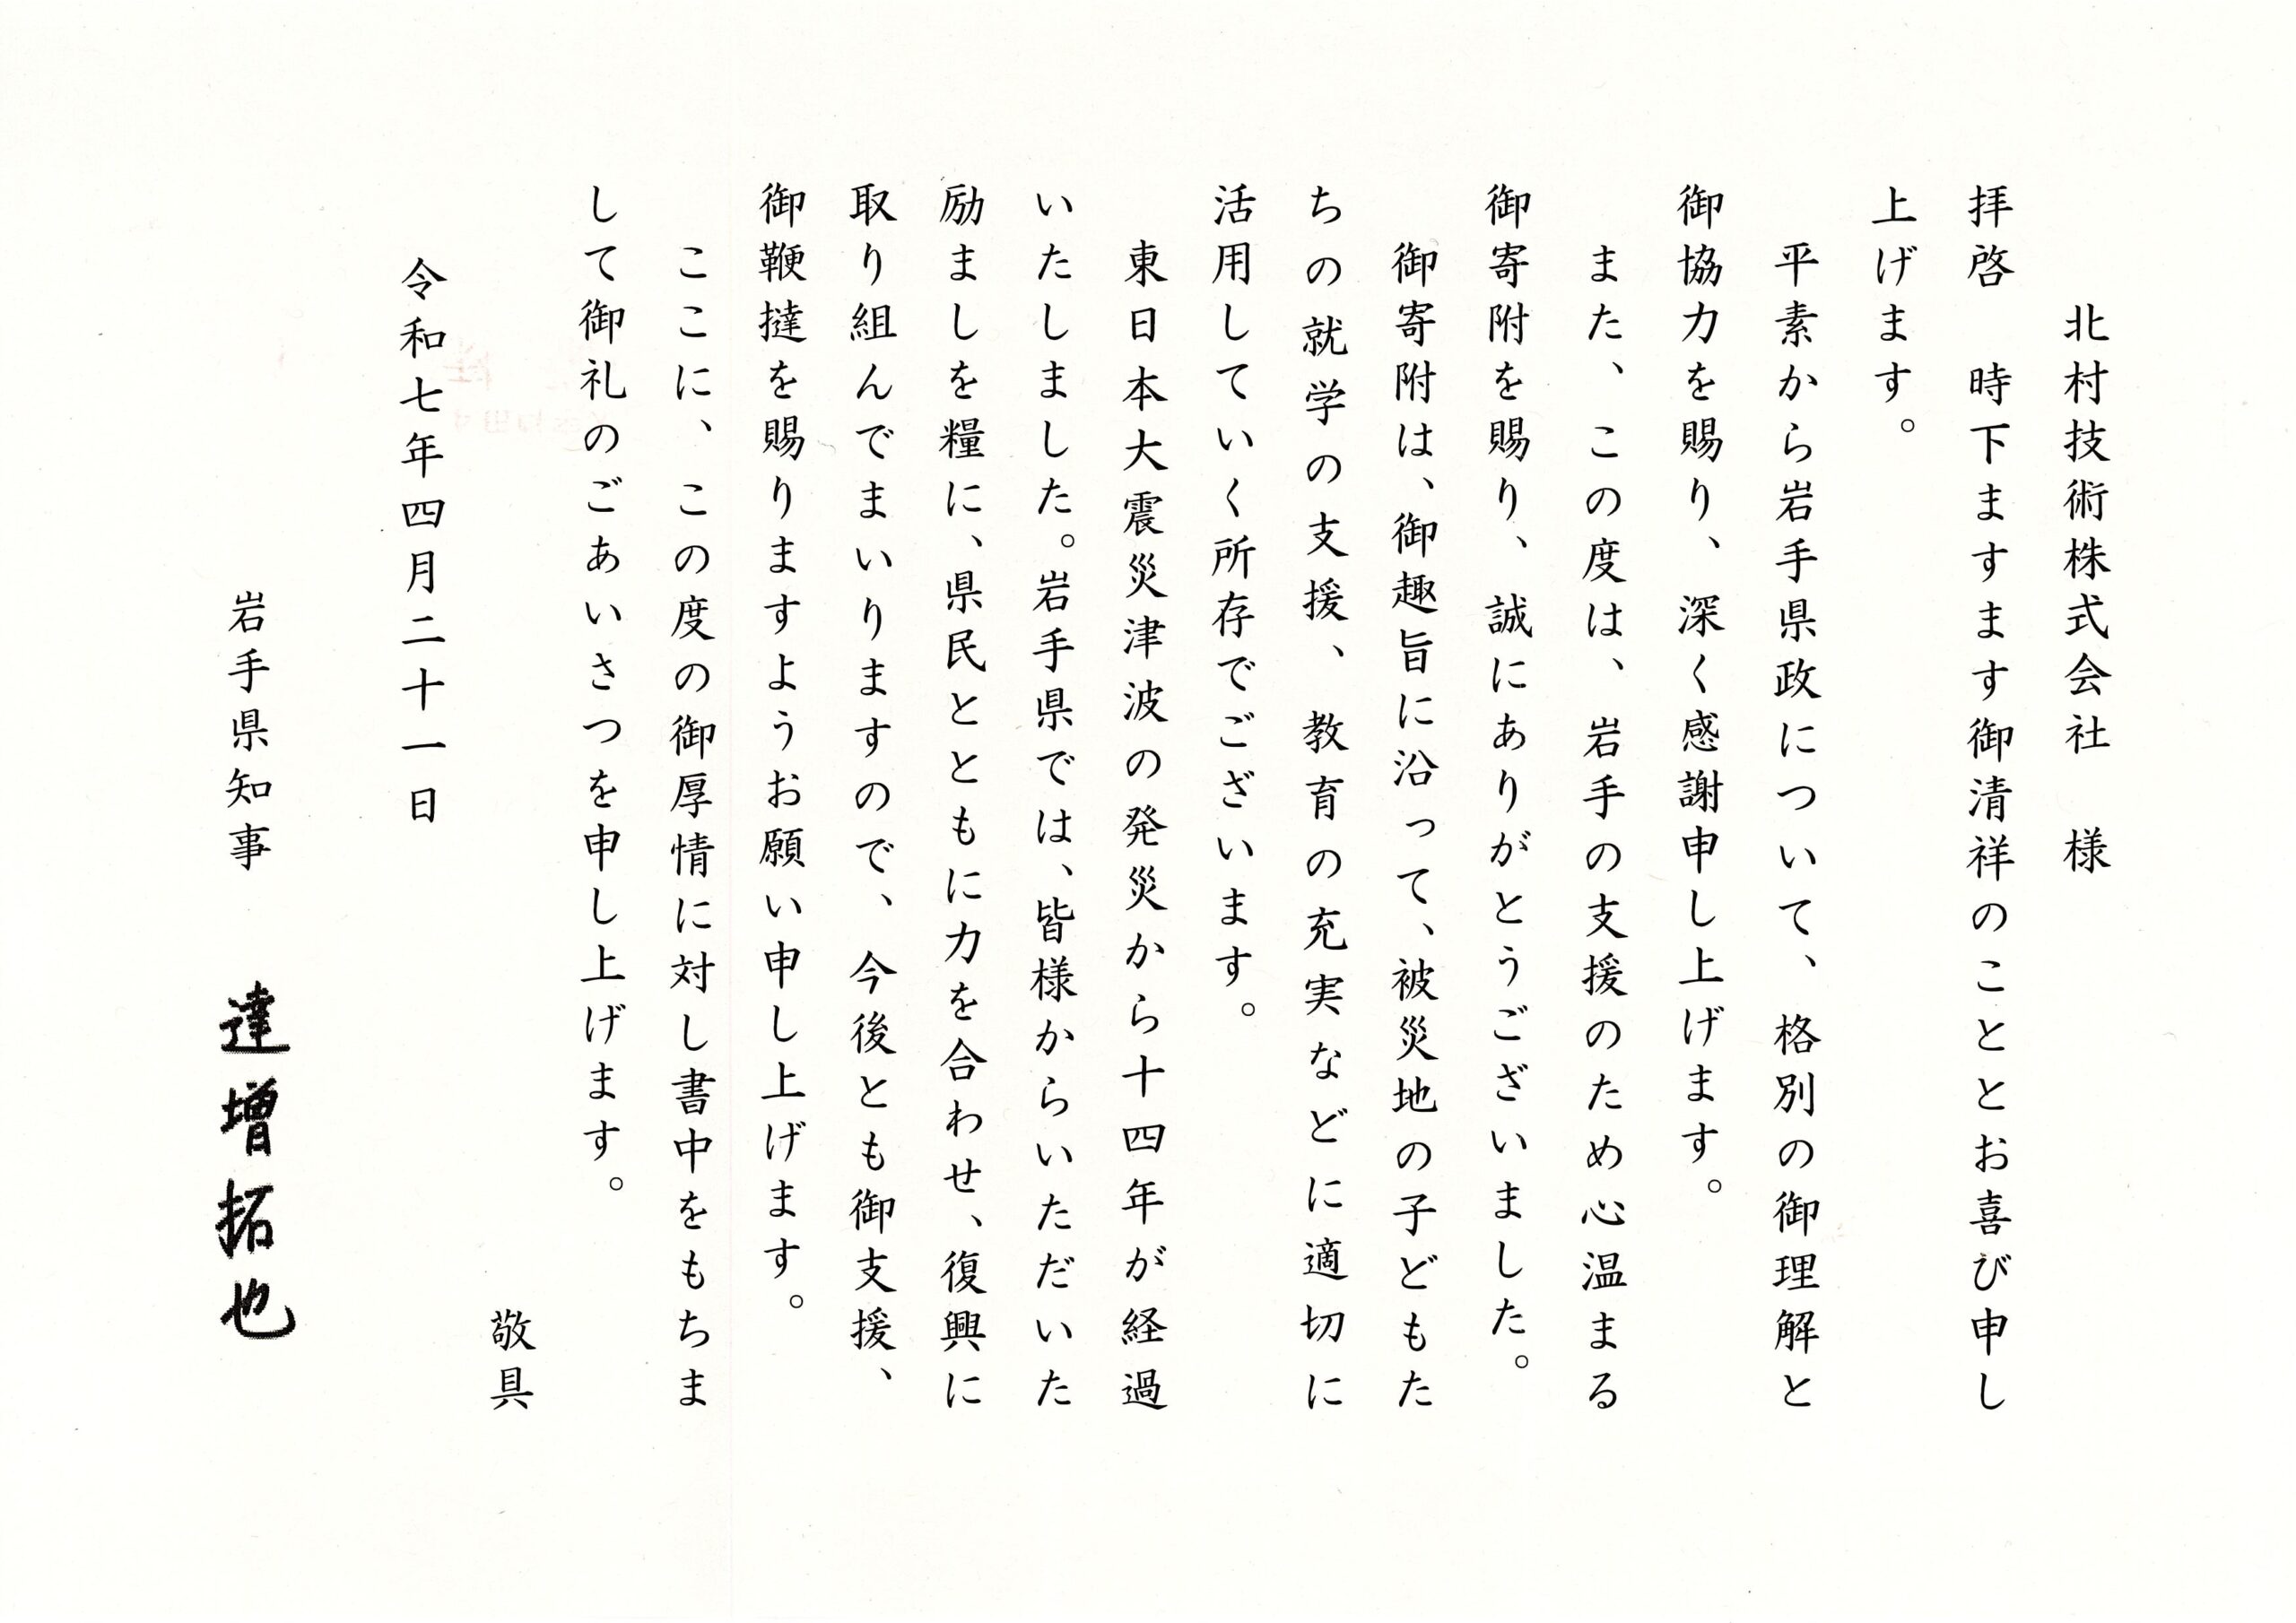 北村技術株式会社　様
拝啓　時下ますます御清祥のこととお喜び申し
上げます。
平素から岩手県政について、格別の御理解と
御協力を賜り、深く感謝申し上げます。
また、この度は、岩手の支援のため心温まる
御寄附を賜り、誠にありがとうございました。
御寄附は、御趣旨に沿って、被災地の子どもた
ちの就学の支援、教育の充実などに適切に
活用していく所存でございます。
東日本大震災津波の発災から十四年が経過
いたしました。岩手県では、皆様からいただいた
励ましを糧に、県民とともに力を合わせ、復興に
取り組んでまいりますので、今後とも御支援、
御鞭撻を賜りますようお願い申し上げます。
ここに、この度の御厚情に対し書中をもちま
して御礼のごあいさつを申し上げます。
敬具
令和七年四月二十一日
岩手県知事　達増拓也